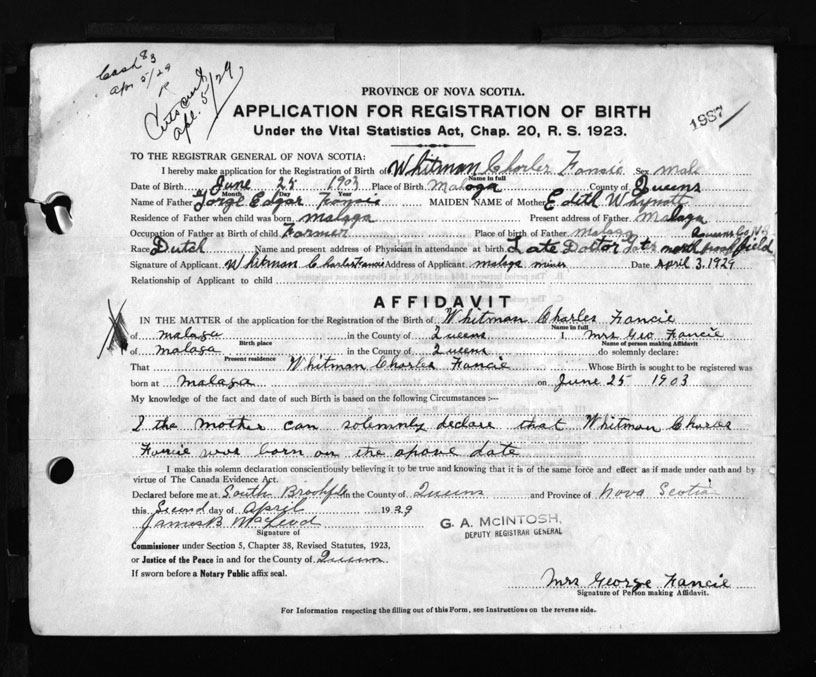 Cash 83
Apr 5/29
Apl. 5/29
PROVINCE OF NOVA SCOTIA.
APPLICATION FOR REGISTRATION OF BIRTH
Under the Vital Statistics Act, Chap. 20, R. S. 1923.
TO THE REGISTRAR GENERAL OF NOVA SCOTIA:
I hereby make application for the Registration of Birth of Whitman Charles Fancie Sex male
Name in full
Date of Birth June 25 1903 Place of Birth Malaga County of Queens
Month Day Year
Name of Father Gorge Edgar Francis MAIDEN NAME of Mother Edith Whynott
Residence of Father when child was born malaga Present address of Father Malaga
Queens Co N.S
Occupation of Father at Birth of child Farmer Place of birth of Father malaga
Race Dutch Name and present address of Physician in attendance at birth Late Doctor north brookfield
Signature of Applicant Whitman Charles Francis Address of Applicant malaga mines Date April 3, 1929
Relationship of Applicant to child
AFFIDAVIT
IN THE MATTER of the application for the Registration of the Birth of Whitman Charles Fancie
Name in full
of malaga in the County of Queens I, Mrs Geo Fancie
Birth place Name of person making Affidavit
of malaga in the County of Queens do solemnly declare:
Present residence
That Whitman Charles Fancie Whose Birth is sought to be registered was
born at malaga on June 25 1903
My knowledge of the fact and date of such Birth is based on the following Circumstances :--
I the mother can solemnly declare that Whitman Charles
Fancie was born on the above date
I make this solemn declaration conscientiously believing it to be true and knowing that it is of the same force and effect as if made under oath and by
virtue of The Canada Evidence Act.
Declared before me at South Brookfield in the County of Queens and Province of Nova Scotia
this Second day of April 1929
James B McLeod
Signature of
G. A. McINTOSH,
DEPUTY REGISTRAR GENERAL
Commissioner under Section 5, Chapter 38, Revised Statutes, 1923,
or Justice of the Peace in and for the County of Queens
If sworn before a Notary Public affix seal.
Mrs George Fancie
Signature of Person making Affidavit.
For Information respecting the filling out of this Form, see Instructions on the reverse side.